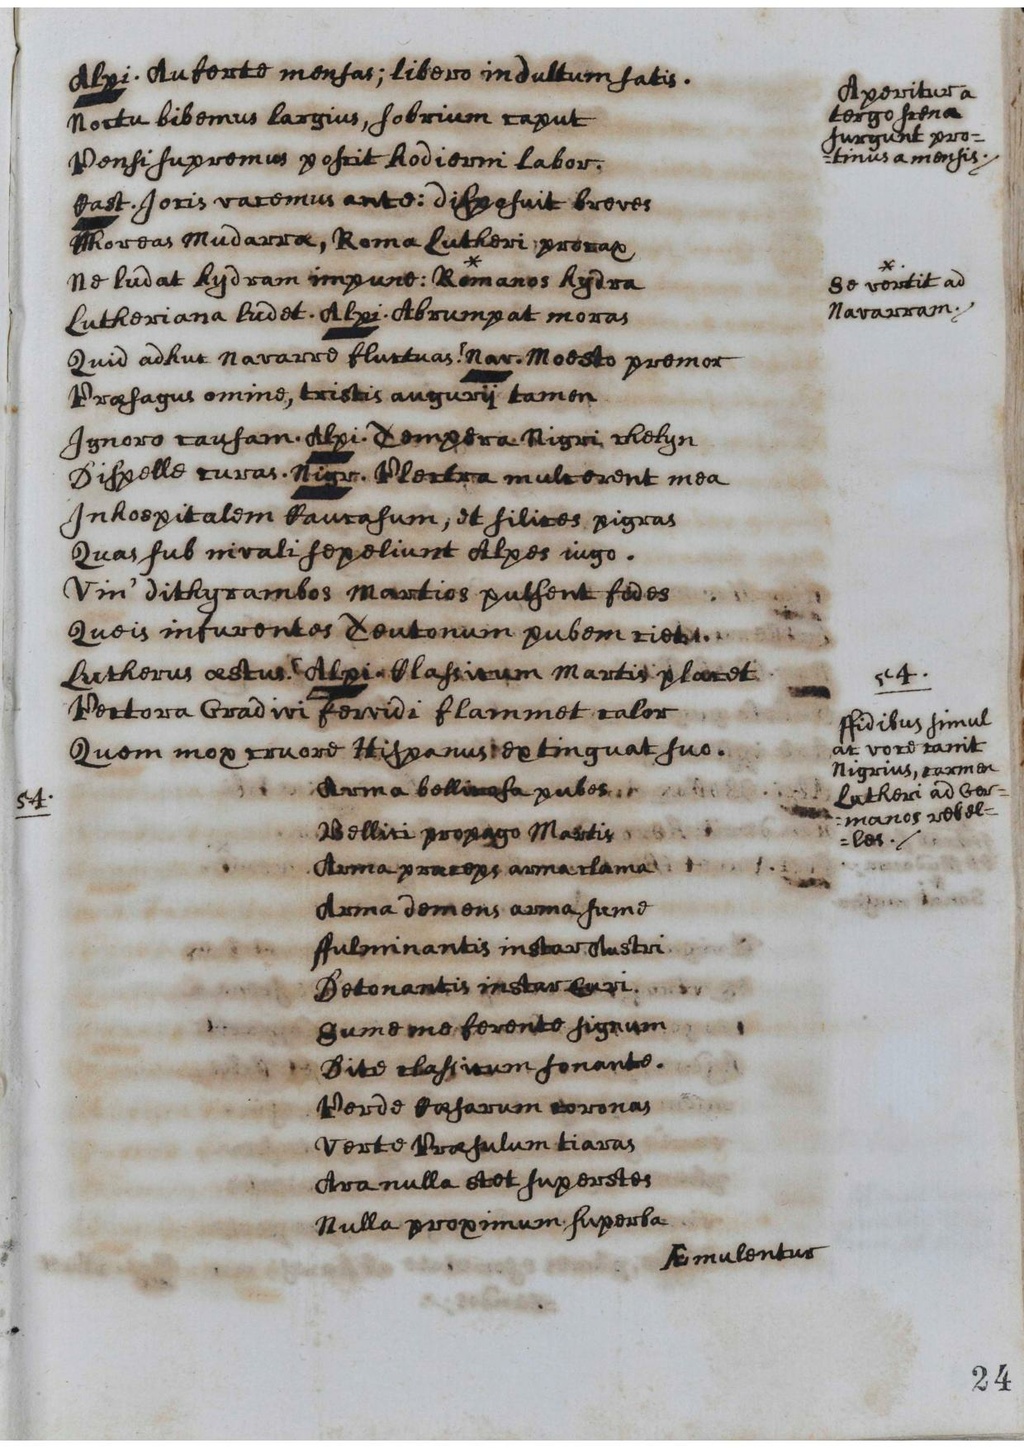 Alpi. Auferte mensas; libero indultum satis.
Noctu bibemus largius, sobrium caput
Pensi supremus poscit hodierni labor.
Cast. Jocis vacemus ante: disposuit breves
Choreas Mudarra, Roma Lutheri procax
Ne ludat hydram impune: Romanos hydra
Lutheriana ludet. Alpi. Abrumpat moras
Quid adhuc Navarre fluctuas? Nav. Moesto premor
Præsagus omine, tristis augurij tamen
Ignoro causam. Alpi. Tempera Nigri chelyn
Dispelle curas. Nigr. Plectra mulcerent mea
Inhospitalem Caucasum, et silices pigras
Quas sub nivali sepeliunt Alpes iugo.
Vin' dithyrambos Martios pulsent fides
Queis infurentes Teutonum pubem ciet
Lutherus æstus? Alpi. Classicum Martis placet
Pectora Gradivi fervidi flammet calor
Quem mox cruore Hispanus extinguat suo.
Arma bellicosa pubes
Bellici propago Martis
Arma præceps arma clama
Arma demens arma sume
Fulminantis instar Austri
Detonantis instar Euri
Sume me ferente signum
Dite classicum sonante.
Perde Cæsarum coronas
Verte Præsulum tiaras
Ara nulla stet superstes
Nulla proximum superba
Æmulentur
Aperitur a
tergo scena
surgunt pro=
=tinus a mensis.
*
*
Se vertit ad
Navarram.
54.
54.
ffidibus simul
ac voce canit
Nigrius, carmen
Lutheri ad Ger=
=manos rebel=
=les.
24